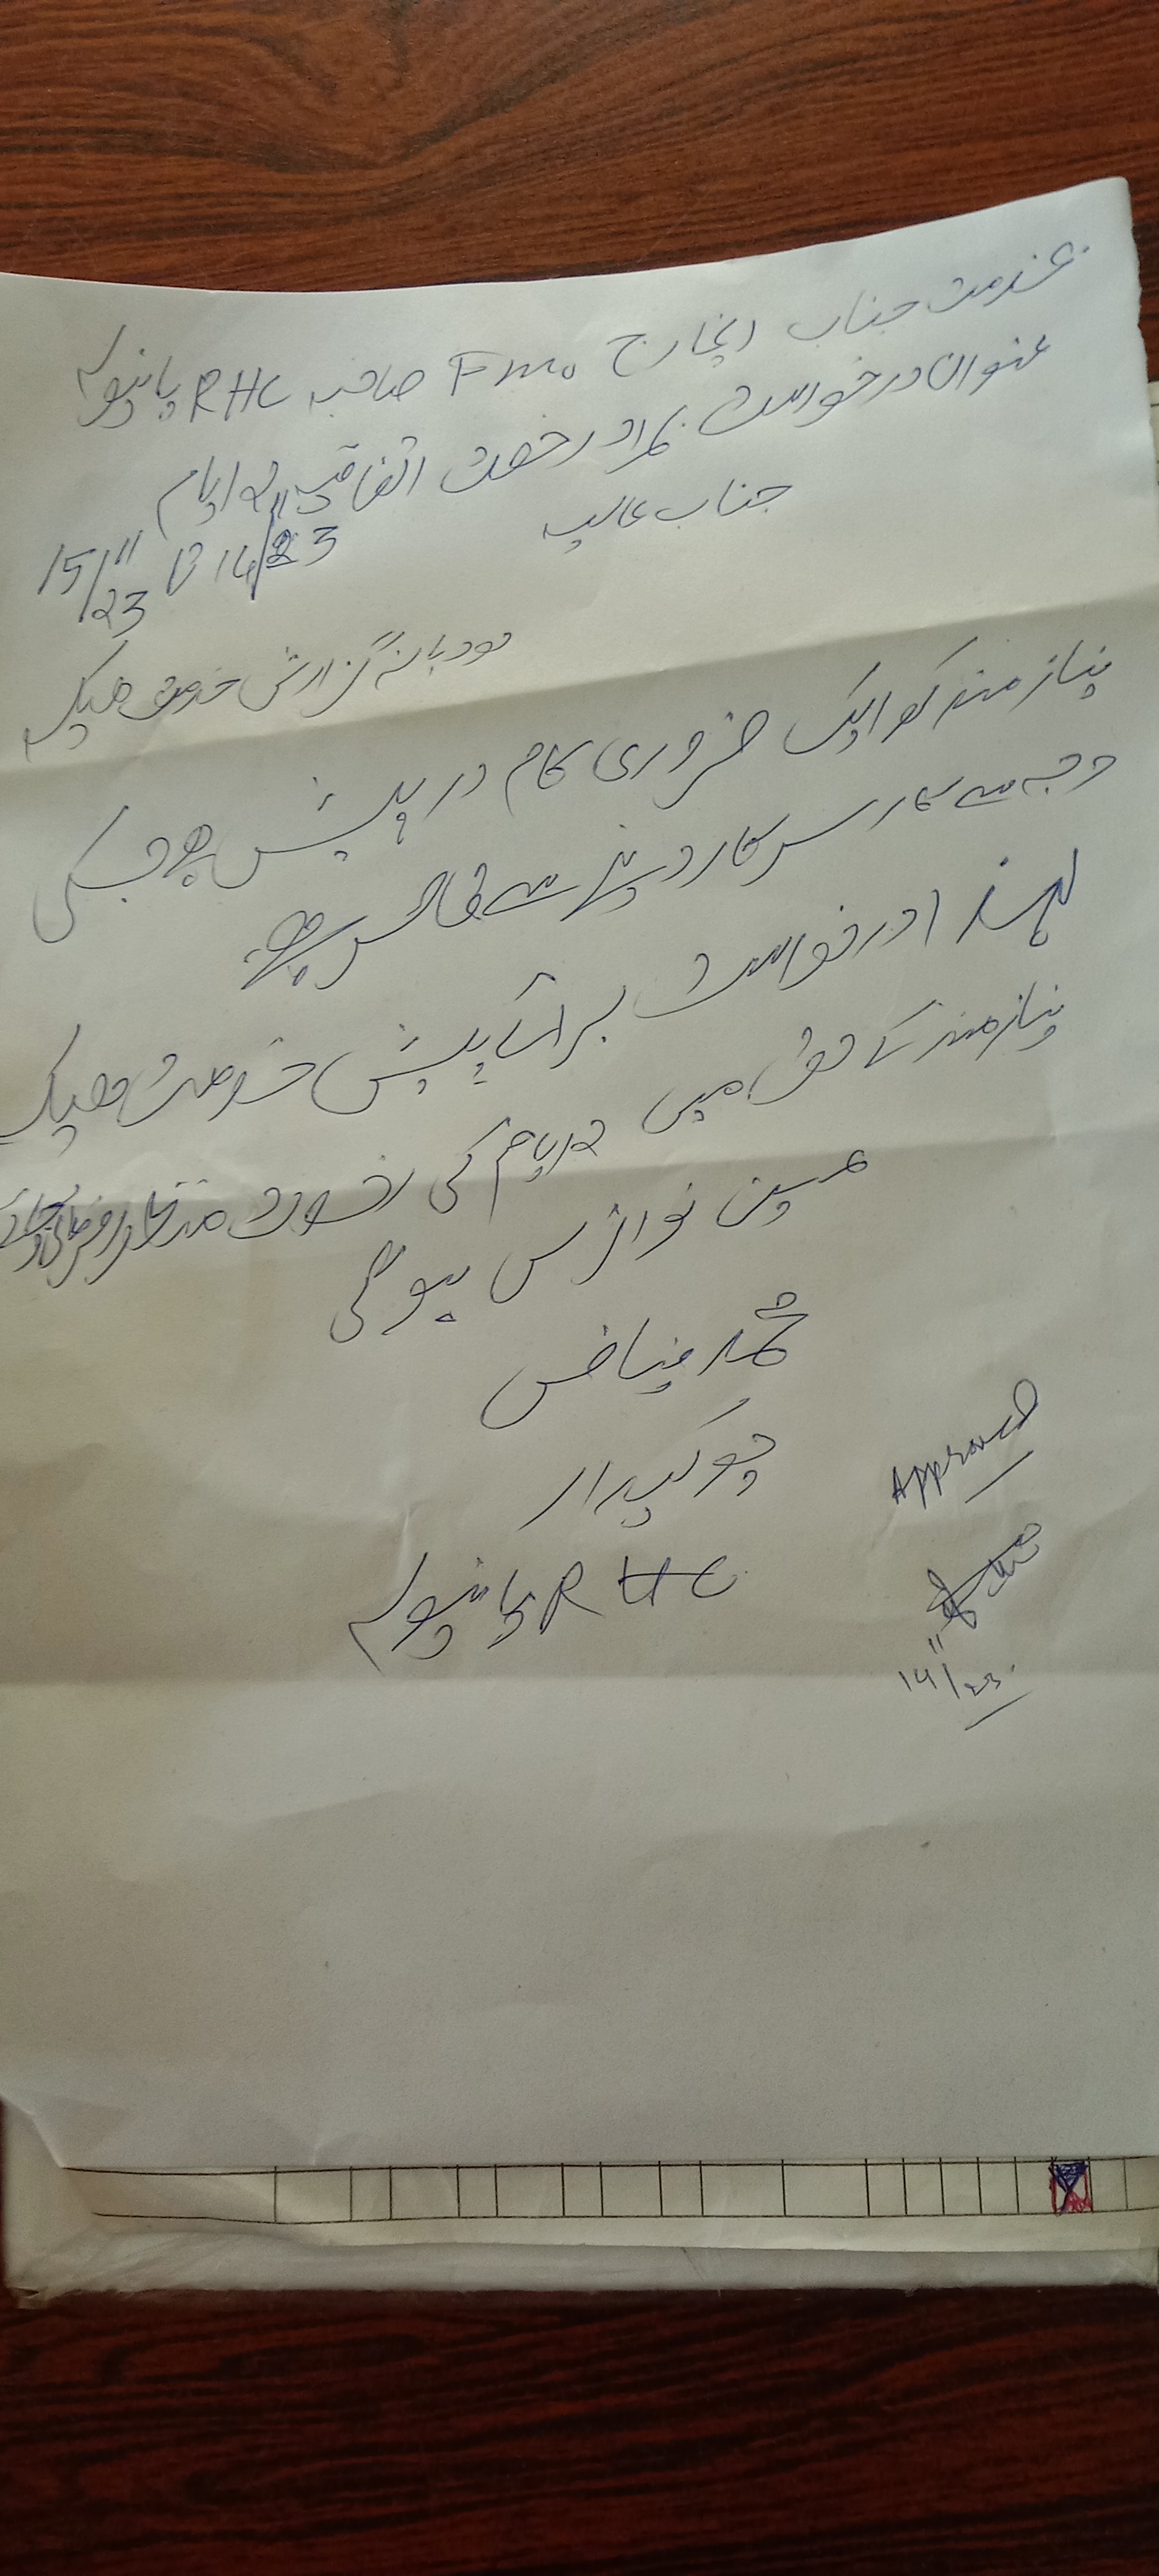 بخدمت جناب انچارج F.M.O صاحبہ RHC پانیولہ
عنوان درخواست بمراد رخصت اتفاقیہ 2 ایام
14/11/23 تا 15/11/23
جناب عالیہ
مودبانہ گزارش خدمت ہیکہ
نیازمند کو ایک ضروری کام درپیش ہے جسکی
وجہ سے کار سرکار دینے سے قاصر ہے
لہذا درخواست برائے پیش خدمت ہیکہ
نیازمند کے حق میں 2 ایام کی رخصت منظور فرمائی جائے
عین نوازش ہوگی
محمد فیاض
چوکیدار
RHC پانیولہ
Approved
14/11/23